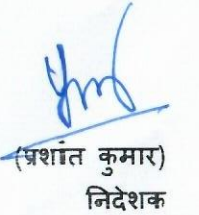 (प्रशांत कुमार)
निदेशक